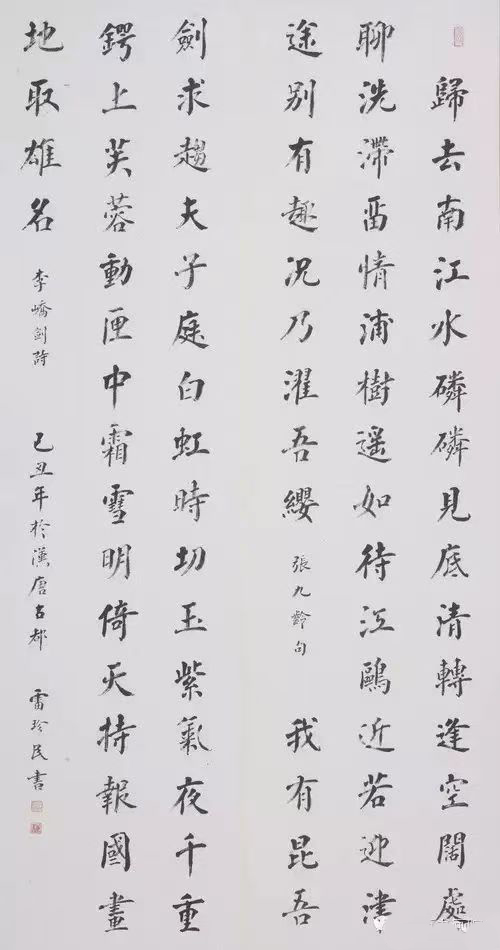 歸去南江水磷磷見底清轉逢空闊處
聊洗滯留情浦樹遥如待江鷗近若迎津
途别有趣况乃濯吾纓 張九齡句 我有昆吾
劍求趨夫子庭白虹時切玉紫氣夜千重
鍔上芙蓉動匣中霜雪明倚天持報國畫
地取雄名 李嶠劍詩 己丑年於漢唐古都 雷珍民書